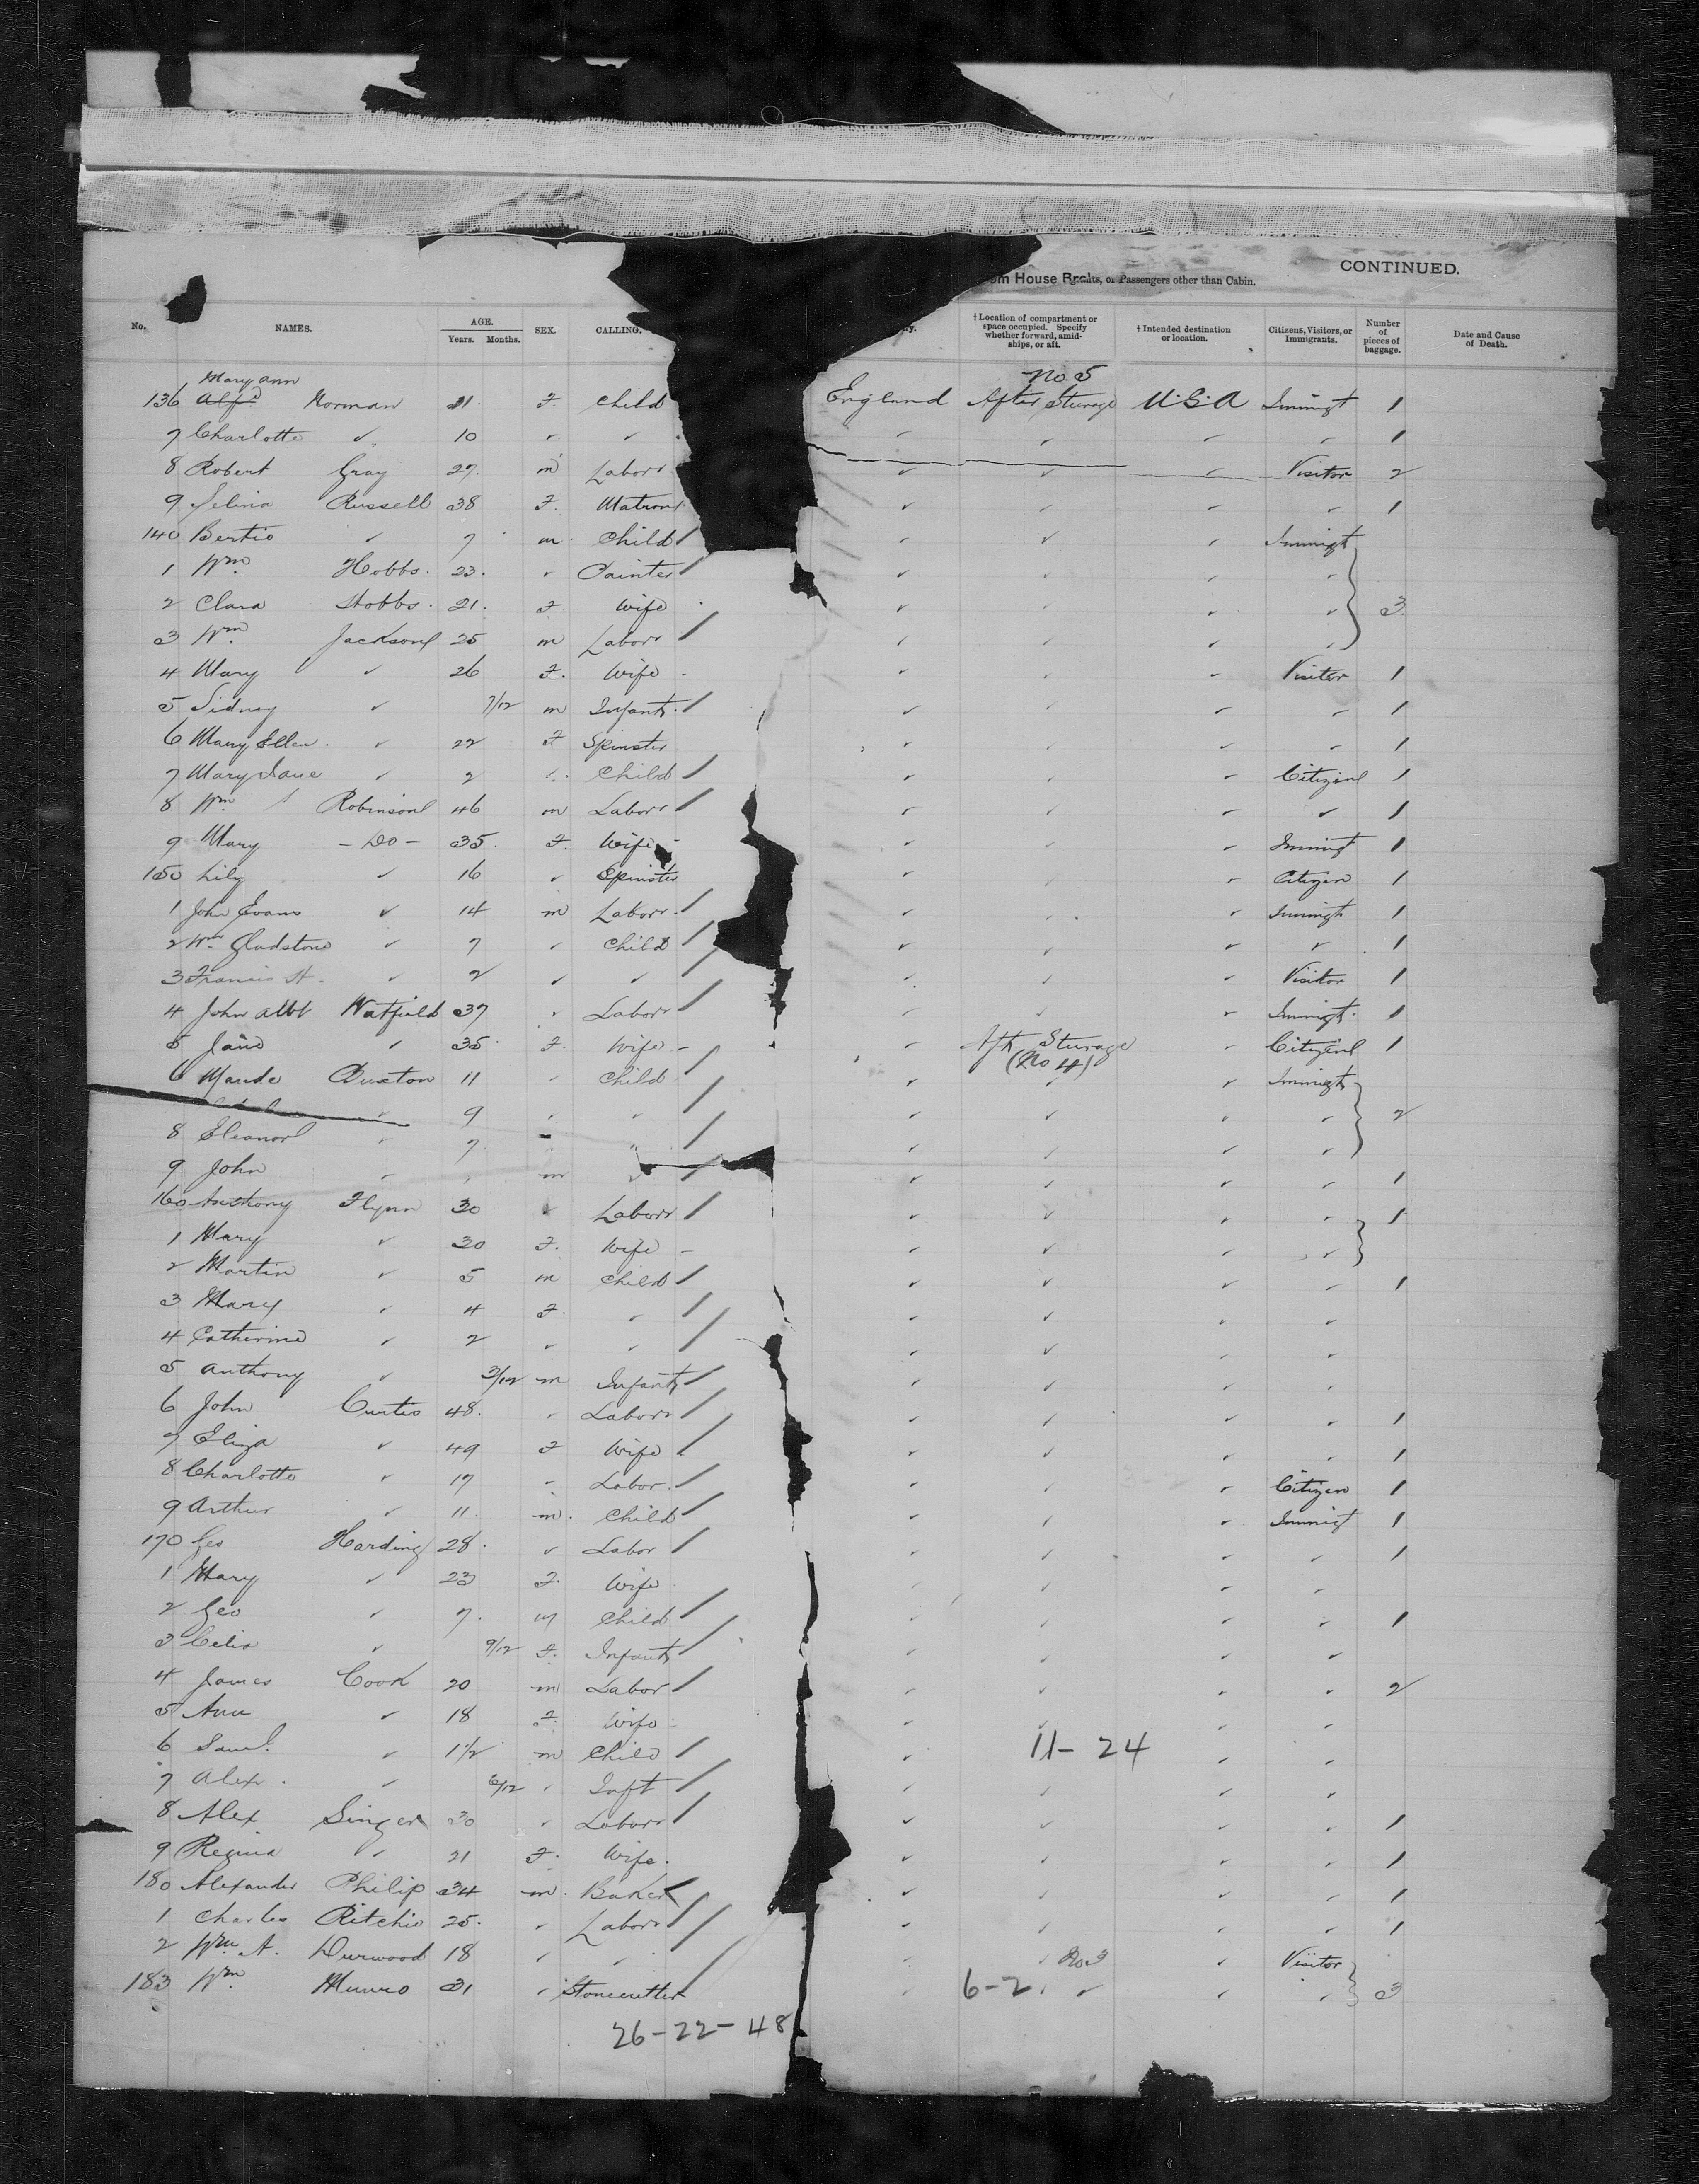 CONTINUED.
om House Br , or Passengers other than Cabin.
No. NAMES. AGE. Years. Months. SEX. CALLING. y. †Location of compartment or space occupied. Specify whether forward, amid-ships, or aft. †Intended destination or location. Citizens, Visitors, or Immigrants. Number of pieces of baggage. Date and Cause of Death.
Mary Ann No 5
136 Alfd Norman 21 F. Child England After Sturage U.S.A Immigt 1
7 Charlotte ✓ 10 ✓ ✓ ✓ ✓ ✓ ✓ 1
8 Robert Gray 27. m Laborr ✓ ✓ ✓ Visitor 2
9 Selina Russell 38 F. Matron ✓ ✓ ✓ ✓ 1
140 Bertie ✓ 7 m. Child / ✓ ✓ ✓ Immigt
1 Wm Hobbs. 23. ✓ Painter / ✓ ✓ ✓ ✓
2 Clara Hobbs. 21. F Wife ✓ ✓ ✓ ✓ 3
3 Wm Jackson 25 m Laborr / ✓ ✓ ✓ ✓
4 Mary ✓ 26 F. Wife - ✓ ✓ ✓ Visitor 1
5 Sidney ✓ 7/12 m Infant / ✓ ✓ ✓ ✓ 1
6 Mary Ellen ✓ 22 F Spinster ✓ ✓ ✓ ✓ 1
7 Mary Jane ✓ 2 ✓ Child / ✓ ✓ ✓ Citizen 1
8 Wm Robinson 46 m Laborr / ✓ ✓ ✓ ✓ 1
9 Mary - Do - 35. F. Wife - ✓ ✓ ✓ Immigt 1
150 Lily ✓ 16 ✓ Spinster ✓ ✓ ✓ Citizen 1
1 John Evans ✓ 14 m Laborr / ✓ ✓ ✓ Immigt 1
2 Wm Gladstone ✓ 7 ✓ Child / ✓ ✓ ✓ ✓ 1
3 Francis H. ✓ 2 ✓ ✓ / ✓ ✓ ✓ Visitor 1
4 John Albt Watfield 37 ✓ Laborr / ✓ ✓ ✓ Immigt 1
5 Jane ✓ 35. F. Wife - ✓ Aft Sturage (No 4) ✓ Citizen 1
6 Maude Buxton 11 ✓ Child / ✓ ✓ ✓ Immigt
✓ 9 ✓ ✓ / ✓ ✓ ✓ ✓ 2
8 Eleanor ✓ 7 / ✓ ✓ ✓ ✓
9 John ✓ m ✓ / ✓ ✓ ✓ ✓ 1
160 Anthony Flynn 30 ✓ Laborr / ✓ ✓ ✓ ✓ 1
1 Mary ✓ 30 F. Wife - ✓ ✓ ✓ ✓
2 Martin ✓ 5 m Child / ✓ ✓ ✓ ✓ 1
3 Mary ✓ 4 F. ✓ / ✓ ✓ ✓ ✓
4 Catherine ✓ 2 ✓ ✓ / ✓ ✓ ✓ ✓
5 Anthony ✓ 3/12 m Infant / ✓ ✓ ✓ ✓
6 John Curtis 48. ✓ Laborr / ✓ ✓ ✓ ✓ 1
7 Eliza ✓ 49 F Wife / ✓ ✓ ✓ ✓ 1
8 Charlotte ✓ 17 ✓ Labor. / ✓ ✓ ✓ Citizen 1
9 Arthur ✓ 11. m. Child / ✓ ✓ ✓ Immigt 1
170 Geo Harding 28. ✓ Labor / ✓ ✓ ✓ ✓ 1
1 Mary ✓ 23 F. Wife ✓ ✓ ✓ ✓
2 Geo ✓ 7. m Child / ✓ ✓ ✓ ✓ 1
3 Celia ✓ 9/12 F. Infant / ✓ ✓ ✓ ✓
4 James Cook 20 m Labor / ✓ ✓ ✓ ✓ 2
5 Ann ✓ 18 F. Wife ✓ ✓ ✓ ✓
6 Saml. ✓ 1 1/2 m Child / ✓ 11-24 ✓ ✓
7 Alex. ✓ 6/12 ✓ Inft / ✓ ✓ ✓ ✓
8 Alex Singer 30 ✓ Laborr / ✓ ✓ ✓ ✓ 1
9 Regina ✓ 21 F. Wife. ✓ ✓ ✓ ✓ 1
180 Alexander Philip 34 m. Baker / ✓ ✓ ✓ ✓ 1
1 Charles Ritchie 25. ✓ Laborr / ✓ ✓ ✓ ✓ 1
2 Wm A. Durwood 18 ✓ ✓ / ✓ ✓ No 3 ✓ Visitor
183 Wm Munro 31 ✓ Stonecutter ✓ 6-2. ✓ ✓ ✓ 3
26-22-48